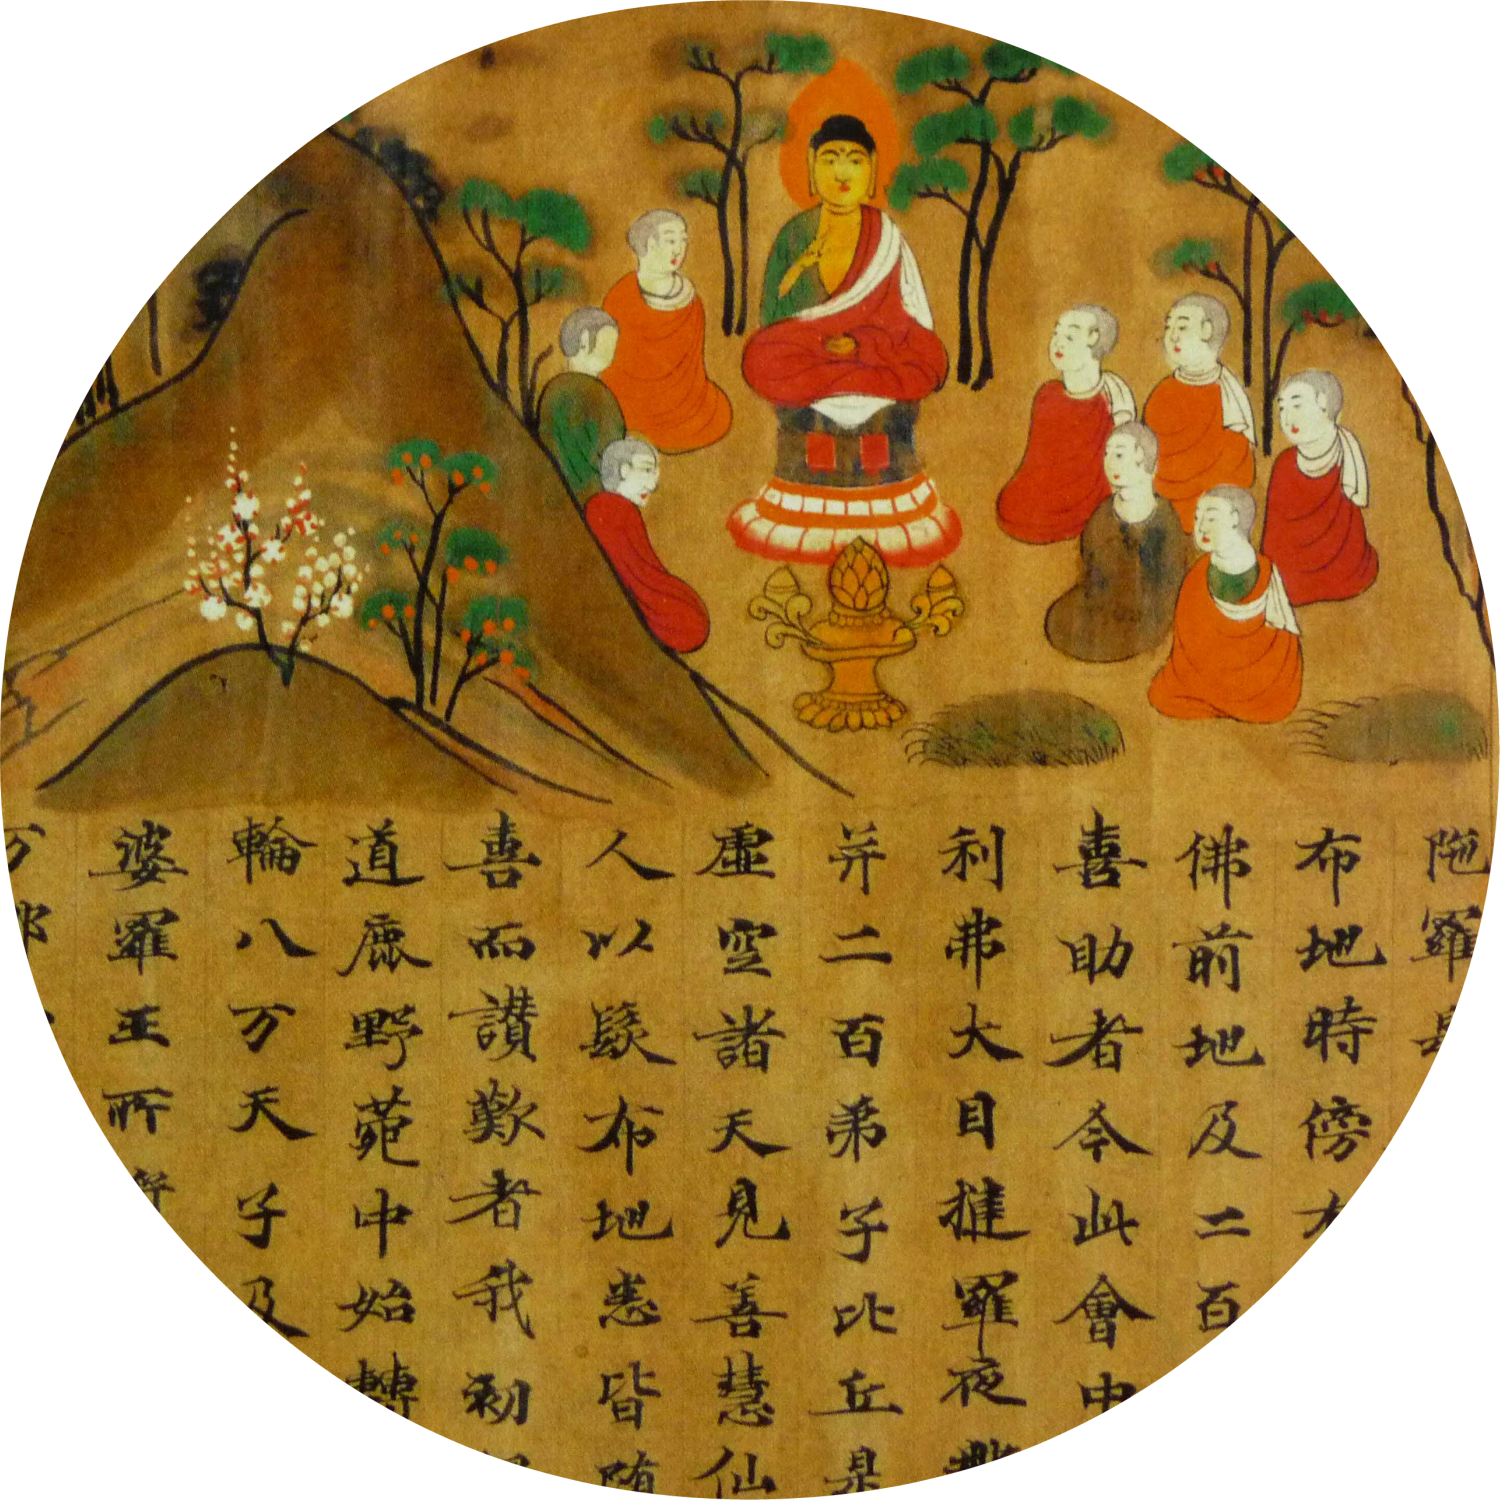 陁羅
布地時傍
佛前地及二百
喜助者今此會中
利弗大目揵羅夜
并二百弟子比丘是
虛空諸天見善慧仙
人以髮布地悉皆随
喜而讃歎者我初
道鹿野菀中始轉
輪八万天子及
婆羅王所
万